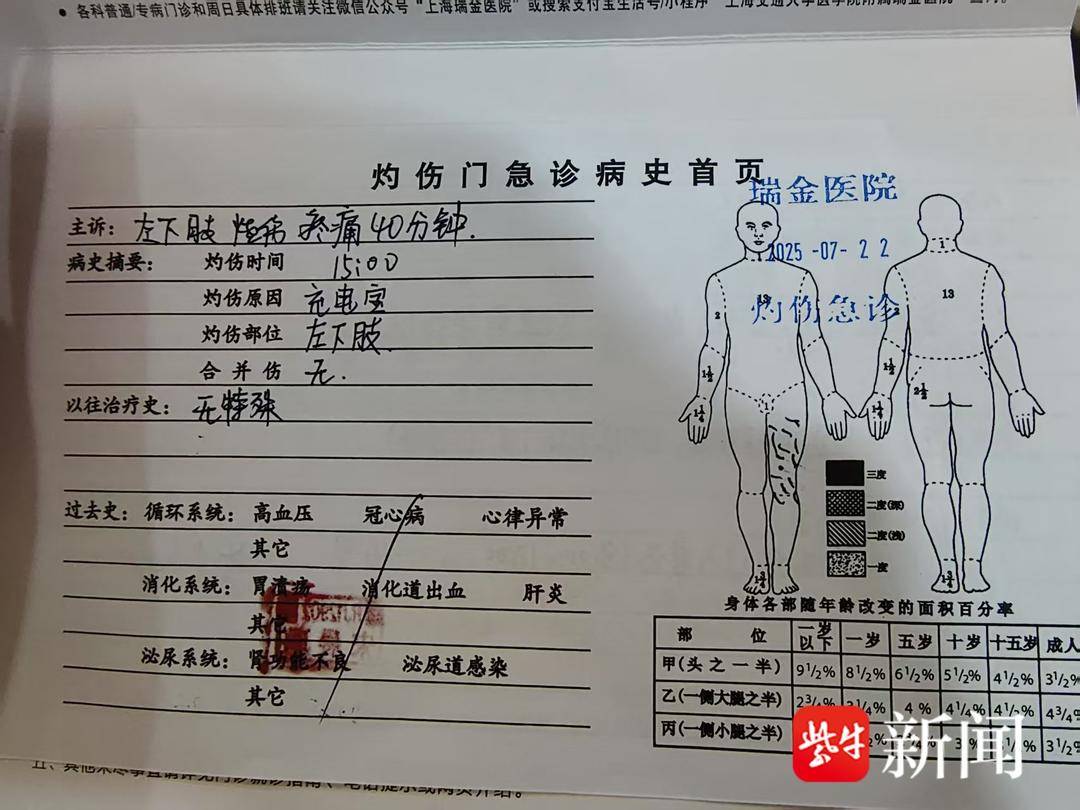 ● 各科普通/专病门诊和周日具体排班请关注微信公众号“上海瑞金医院”或搜索支付宝生活号/小程序“上海交通大学医学院附属瑞金医院”
灼伤门急诊病史首页
瑞金医院
2025-07-22
灼伤急诊
主诉: 左下肢 烧伤 疼痛 40分钟.
病史摘要: 灼伤时间 15:00
灼伤原因 充电宝
灼伤部位 左下肢.
合并伤 无.
以往治疗史: 无特殊
过去史: 循环系统: 高血压 冠心病 心律异常
其它
消化系统: 胃溃疡 消化道出血 肝炎
其它
泌尿系统: 肾功能不良 泌尿道感染
其它
1 1
13 13
2 2
1½ 1½
1¼ 1¼
2½
1
三度
二度(深)
二度(浅)
一度
1¾ 1¾
身体各部随年龄改变的面积百分率
部位 一岁以下 一岁 五岁 十岁 十五岁 成人
甲(头之一半) 9½% 8½% 6½% 5½% 4½% 3½%
乙(一侧大腿之半) 2¾% 3¼% 4% 4¼% 4½% 4¾%
丙(一侧小腿之半) 3½%
紫牛新闻
五、其他未尽事宜请详见门诊就诊指南、电话提示或网页介绍。